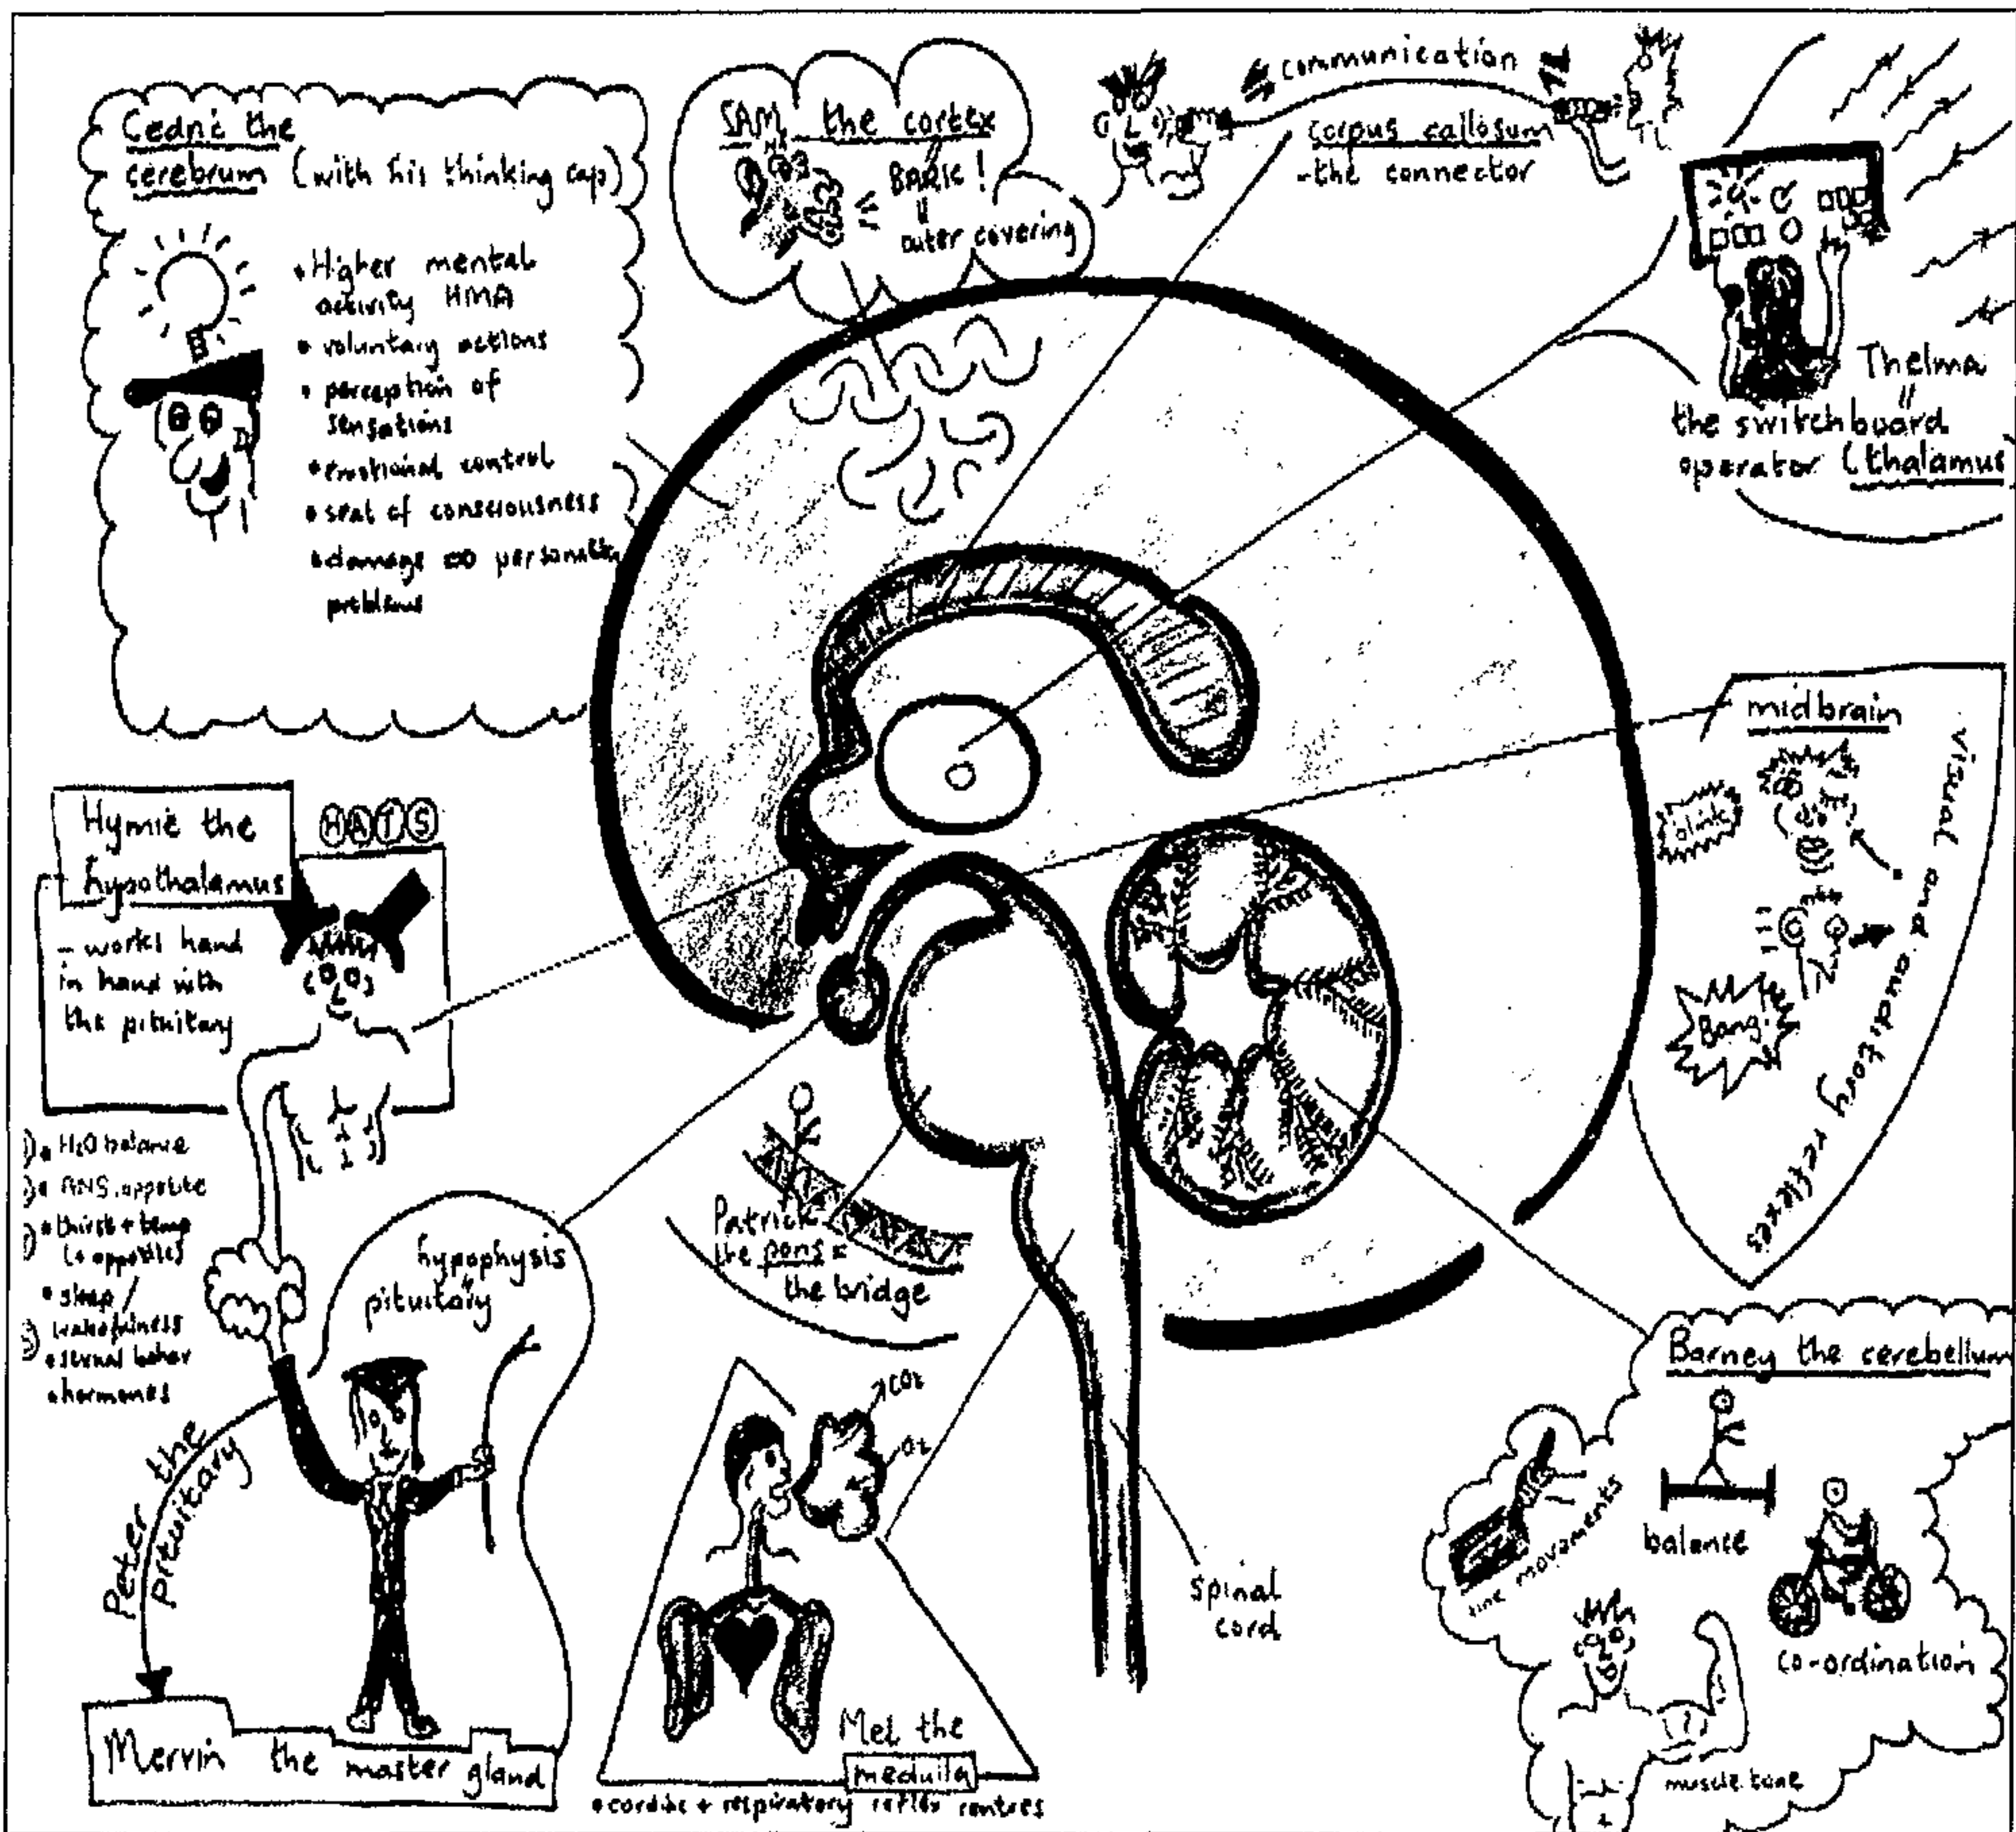 Cedric the
cerebrum (with his thinking cap)
• Higher mental
activity HMA
• voluntary actions
• perception of
sensations
• emotional control
• seat of consciousness
• damage ∞ personality
problems
SAM the cortex
BARK!
"
outer covering
communication
corpus callosum
- the connector
Thelma
"
the switchboard
operator (thalamus
midbrain
blink
Bang!
visual and auditory reflexes
Hymie the
hypothalamus
HATS
- works hand
in hand with
the pituitary
• H2O balance
• ANS, appetite
• thirst + temp
(+ opposites)
• sleep/
wakefulness
• sexual behav
• hormones
hypophysis
"
pituitary
Peter the
pituitary
Mervin the master gland
Patrick
the pons =
the bridge
CO2
O2
Mel the
medulla
• cardiac + respiratory reflex centres
spinal
cord
Barney the cerebellum
fine movements
balance
co-ordination
muscle tone